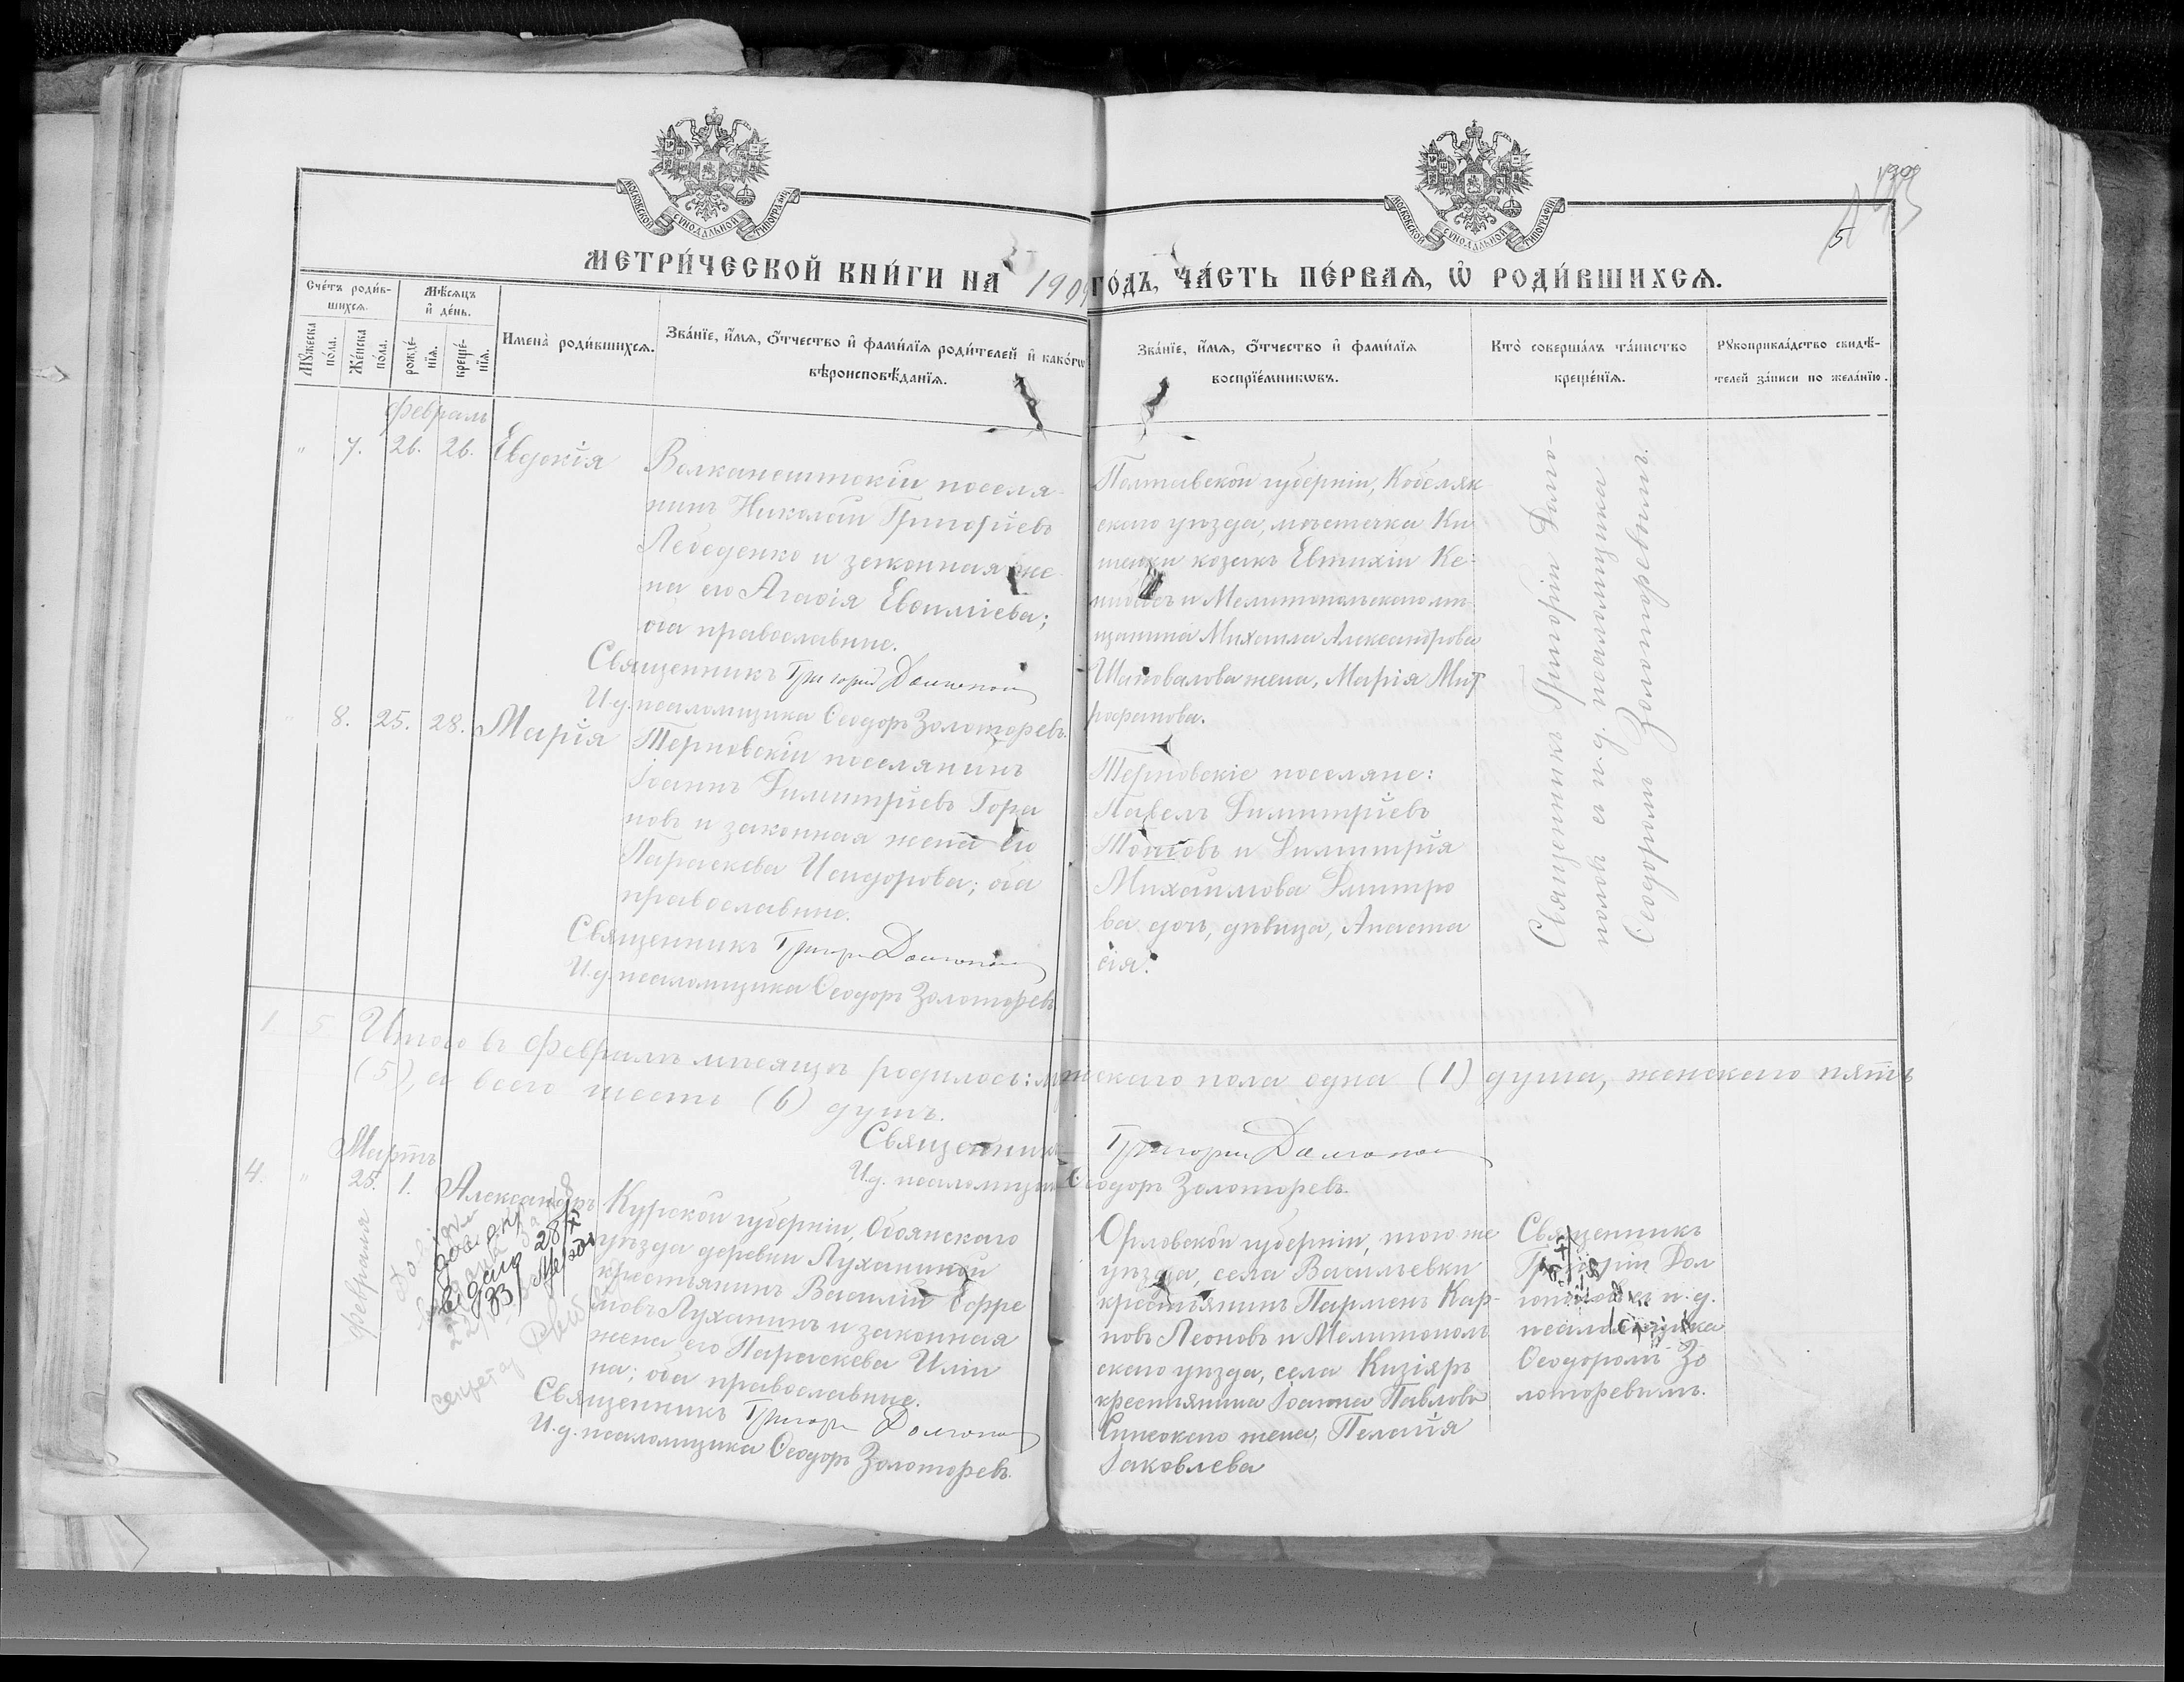 1909
5
МОСКОВСКОЙ СУНОДАЛЬНОЙ ТИПОГРАФІИ
МОСКОВСКОЙ СУНОДАЛЬНОЙ ТИПОГРАФІИ
МЕТРИ́ЧЕСКОЙ КНИ́ГИ НА 190 ГО́ДЪ, ЧА́СТЬ ПЕ́РВАѦ, Ѽ РОДИ́ВШИХСѦ.
Сче́тъ роди́в-
шихсѧ.
Мꙋ́жеска по́ла.
Же́нска по́ла.
Мѣ́сѧцъ и҆ де́нь.
рожде́-нїѧ.
креще́-нїѧ.
Имена̀ роди́вшихсѧ.
Зва́нїе, и҆́мѧ, ѻ҆́тчество и҆ фами́лїѧ роди́телей и҆ како́гѡ
вѣроисповѣ́данїѧ.
Зва́нїе, и҆́мѧ, ѻ҆́тчество и҆ фами́лїѧ
воспрїе́мникѡвъ.
Кто̀ соверша́лъ та́инство
креще́нїѧ.
Рꙋкоприкла́дство свидѣ́-
телей за́писи по жела́нїю.
Февраль
" 7. 26. 26. Евдокія
Волканештскій поселя-
нинъ Николай Григоріевъ
Лебеденко и законная же-
на его Агафія Евфиміева;
оба православные.
Священникъ Григорій Долгополов
И.д. псаломщика Ѳеодоръ Золоторевъ.
Полтавской губерніи, Кобеляк
скаго уѣзда, мѣстечка Ки
шенки козакъ Евтихій Ке-
и Мелитопольскаго мѣ-
щанина Михаила Александрова
Шаповалова жена, Марія Мит
рофанова.
Священникъ Григорій Долго-
половъ съ и.д. псаломщика
Ѳеодоромъ Золоторевымъ.
" 8. 25. 28. Марія
Терновскій поселянинъ
Іоаннъ Димитріевъ Гора
новъ и законная жена его
Параскева Исидорова; оба
православные.
Священникъ Григорій Долгополов
И.д. псаломщика Ѳеодоръ Золоторевъ
Терновскіе поселяне:
Павелъ Димитріевъ
Топовъ и Димитрія
Михаилова Дмитро
ва дочь, дѣвица, Анаста
сія.
1 5 Итого въ Февралѣ мѣсяцѣ родилось: мужскаго пола одна (1) душа, женскаго пять
(5), а всего шесть (6) душъ.
Священникъ Григорій Долгополов
И.д. псаломщика Ѳеодоръ Золоторевъ.
Мартъ
4. " 25. 1. Александръ
Февраля
Курской губерніи, Обоянскаго
уѣзда деревни Луханиной
крестьянинъ Василій Софро
новъ Луханинъ и законная
жена его Параскева Иліи
на; оба православные.
Священникъ Григорій Долгополов
И.д. псаломщика Ѳеодоръ Золоторевъ.
Орловской губерніи, того же
уѣзда, села Васильевки
крестьянинъ Парменъ Кар-
повъ Леоновъ и Мелитополь
скаго уѣзда, села Кизіяръ
крестьянина Іоанна Павлова
жена, Пелагія
Іаковлева
Священникъ
Григорій Дол
гополовъ съ и.д.
псаломщика
Ѳеодоромъ Зо
лоторевымъ.